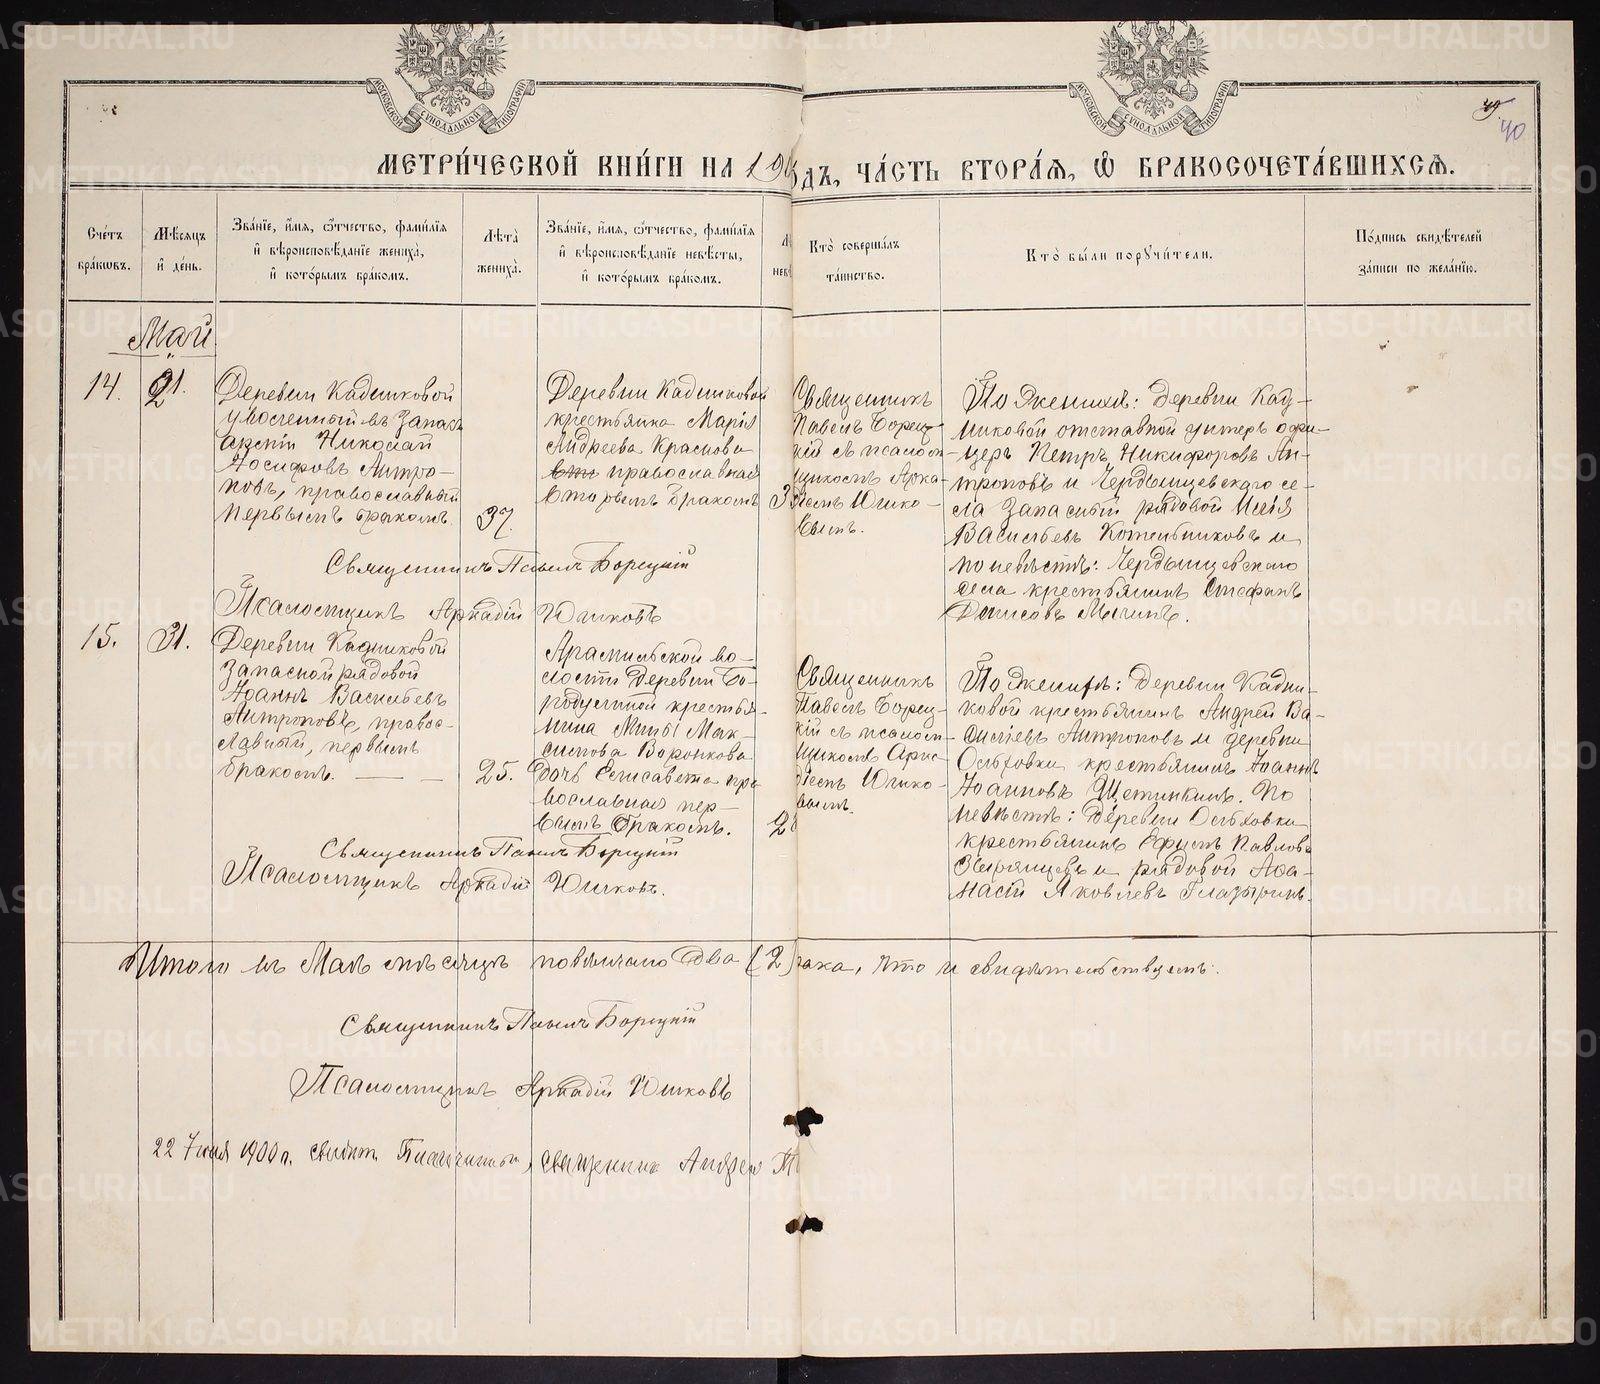 МОСКОВСКОЙ СѴНОДАЛЬНОЙ ТИПОГРАФІИ
МОСКОВСКОЙ СѴНОДАЛЬНОЙ ТИПОГРАФІИ
40
МЕТРИ́ЧЕСКОЙ КНИ́ГИ НА 190
ОДЪ, ЧА́СТЬ ВТОРА́Ѧ, Ѽ БРАКОСОЧЕТА́ВШИХСѦ.
Сче́тъ бра́кѡвъ.
Мѣ́сяцъ и҆ де́нь.
Зва́нїе, и҆́мѧ, ѻ҆́тчество, фами́лїѧ и҆ вѣроисповѣ́данїе жениха̀, и҆ кото́рымъ бра́комъ.
Лѣта̀ жениха̀.
Зва́нїе, и҆́мѧ, ѻ҆́тчество, фами́лїѧ и҆ вѣроисповѣ́данїе невѣ́сты, и҆ кото́рымъ бра́комъ.
Кто̀ соверша́лъ та́инство.
Кто̀ бы́ли порꙋчи́тели.
По́дпись свидѣ́телей за́писи по жела́нїю.
Май
14.
21.
Деревни Кадниковой
уволенный въ запасъ
арміи Николай
Іосифовъ Антро-
повъ, православный
первымъ бракомъ.
37.
Деревни Кадниковой
крестьянка Марія
Андреева Краснова
православная
вторымъ бракомъ
3
Священникъ
Павелъ Борец-
кій съ псалом-
щикомъ Арка-
діемъ Юшко-
вымъ.
По женихѣ: деревни Кад-
никовой отставной унтеръ офи-
церъ Петръ Никифоровъ Ан-
троповъ и Чердынцевскаго се-
ла запасный рядовой Илія
Васильевъ Котельниковъ и
по невѣстѣ: Чердынцевскаго
села крестьянинъ Стефанъ
Денисовъ Мычинъ.
Священникъ Павелъ Борецкій
Псаломщикъ Аркадій Юшковъ
15.
31.
Деревни Кадниковой
запасной рядовой
Іоаннъ Васильевъ
Антроповъ, право-
славный, первымъ
бракомъ.
25.
Арамильской во-
лости деревни Бо-
родулиной крестья-
нина Мины Мак-
симова Воронкова
дочь Елисавета пра
вославная пер-
вымъ бракомъ.
2
Священникъ
Павелъ Борец-
кій съ псалом-
щикомъ Арка-
діемъ Юшко-
вымъ.
По женихѣ: деревни Кадни-
ковой крестьянинъ Андрей Ва-
сильевъ Антроповъ и деревни
Ольховки крестьянинъ Іоаннъ
Іоанновъ Щетинкинъ. По
невѣстѣ: деревни Ольховки
крестьянинъ Ефимъ Павловъ
Звѣрянцевъ и рядовой Аѳа-
насій Яковлевъ Глазыринъ.
Священникъ Павелъ Борецкій
Псаломщикъ Аркадій Юшковъ.
Итого въ Маѣ мѣсяцѣ повѣнчано два (2)
рака, что и свидѣтельствуемъ:
Священникъ Павелъ Борецкій
Псаломщикъ Аркадій Юшковъ
22 Іюня 1900 г. священникъ Андрей
METRIKI.GASO-URAL.RU